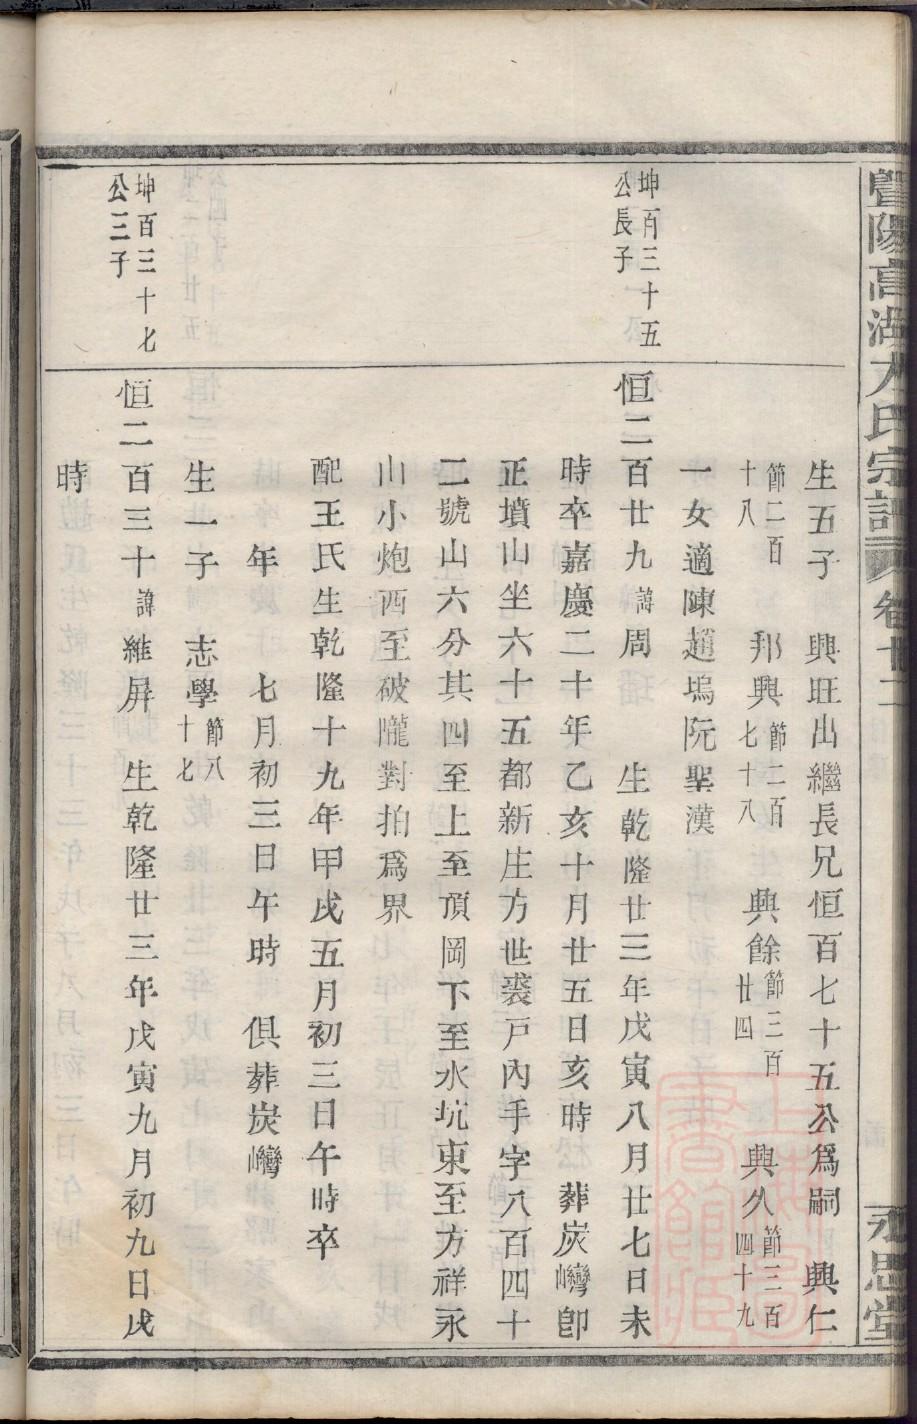 暨陽高湖方氏宗譜 卷十二 永思堂
生五子 興旺出繼長兄恒百七十五公爲嗣 興仁
節二百十八 邦興節二百七十八 興餘節三百廿四 興久節三百四十九
一女適陳趙塢阮聖漢
坤百三十五公長子
恒二百廿九諱周 生乾隆廿三年戊寅八月廿七日未
時卒嘉慶二十年乙亥十月廿五日亥時 葬炭巒卽
正墳山坐六十五都新庄方世裘戸內手字八百四十
二號山六分其四至上至頂岡下至水坑東至方祥永
山小炮西至破隴對拍爲界
配王氏生乾隆十九年甲戌五月初三日午時卒
年 七月初三日午時 俱葬炭巒
生一子 志學節八十七
坤百三十七公三子
恒二百三十諱維屏 生乾隆廿三年戊寅九月初九日戌
時